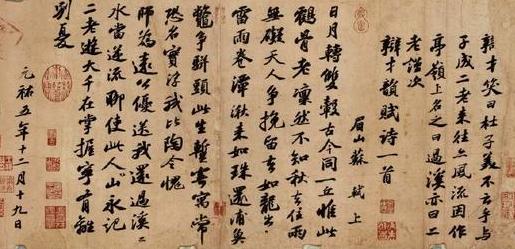 辯才笑曰杜子美不云乎與
子成二老來往亦風流因作
亭嶺上名之曰過溪亦曰二
老謹次
辯才韻賦詩一首
眉山蘇軾上
日月轉雙轂古今同一丘惟此
鶴骨老凜然不知秋去住兩
無礙天人爭挽留去如龍出山
雷雨卷潭湫來如珠還浦魚
鼈爭駢頭此生暫寄寓常
恐名實浮我比陶令愧
師為遠公優送我還過溪〻
水當逆流聊使此人山永記
二老遊大千在掌握寧有離
別憂
元祐五年十二月十九日